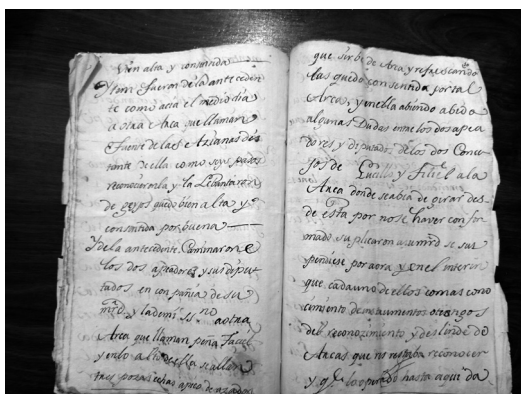 bien alta y consentida
Ytten fueron de la anteceden
te como acia el mediodia
a otra Arca que llaman
Fuente de las Azianas dis
tante de ella como
reconocieronla y la Levantaron
de quedo bien alta y
consentida por buena
Y de la antecedente Caminaron
los dos apeadores y sus diput
tados en compañia de su
mrd y lademi ss no a otra
Arca que llaman peña
y en lo alto de ella se allaron
tres pozas echas a pico de azadon
que sirbe de Arca y refrescando
las quedo consentida por tal
Arcas, y en ella abiendo abido
algunas Dudas entre los dos apea
dores y diputados de los dos Conce
jos de Lucillo y Filiel a la
Arca donde se abia de girar des
de esta por no se haver confor
mado suplicaron a su mrd se sus
pendiese por aora y en el interin
que cada uno de ellos tomas cono
cimiento de instrumentos otorgos
del reconozimiento y deslinde de
Arcas que no restaba reconocer
y q lo operado hasta aqui da